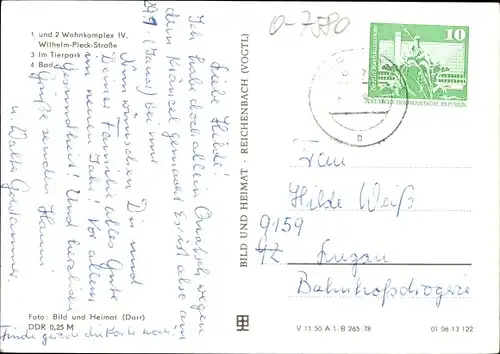 O-7580
1 und 2 Wohnkomplex IV,
Wilhelm-Pieck-Straße
3 Im Tierpark
4 Bad
Liebe Hilde!
Ich habe doch allein
wegen
dem gemacht. Es ist also am
29.1. (Sams.) bei mir
Nun wünschen Dir und
Deiner Familie alles Gute
im neuen Jahr! Vor allem
Gesundheit! Und herzliche
Grüße senden Hanni
u. Walter
Foto: Bild und Heimat (Darr)
DDR 0,25 M
Finde gerade die Karte noch!
BILD UND HEIMAT · REICHENBACH (VOGTL)
10
DEUTSCHE DEMOKRATISCHE REPUBLIK
b
Frau
Hilde Weiß
9159
Lugau
Bahnhofsdrogerie
V 11 50 A 1/B 265/78
01 06 13 122